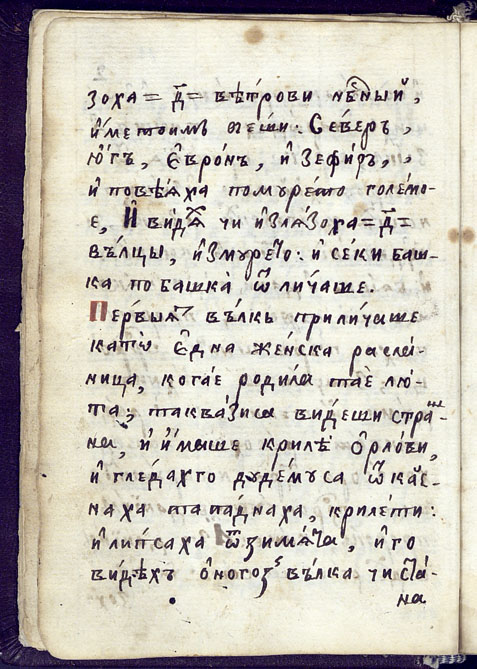 зоха = д҃ = вѣтрови нб҃ный,
и҆метоимъ сѐщи: Се́веръ,
Ю҆́гъ, Є҆вро́нъ, и҆ Зефи́ръ,
и҆ повѣѧха помуре́то голе́мо-
е, И҆ ви́дꙗ чи и҆злѧ́зоха = д҃ =
въ́лцы, и҆змурето: и҆ се́ки баш-
ка по башка̀ ѿли́чаше.
Пе́рвыѧт въ́лкь прили́чаше
като̀ Є҆дна же́нска распа́-
ница, кога́е роди́ла та̀е лю́-
та; таква́зиса ви́деши стра-
на̀, и҆ и҆́маше крилѣ̀ О҆рло́ви,
и҆ гле́дахго дуде́муса ѿка́с-
наха тапа́днаха, криле́ти:
и҆ ли́псаха ѿзимѧ́та, и҆ го
ви́дѣхъ о҆ногоз въ́лка чи ста́-
на